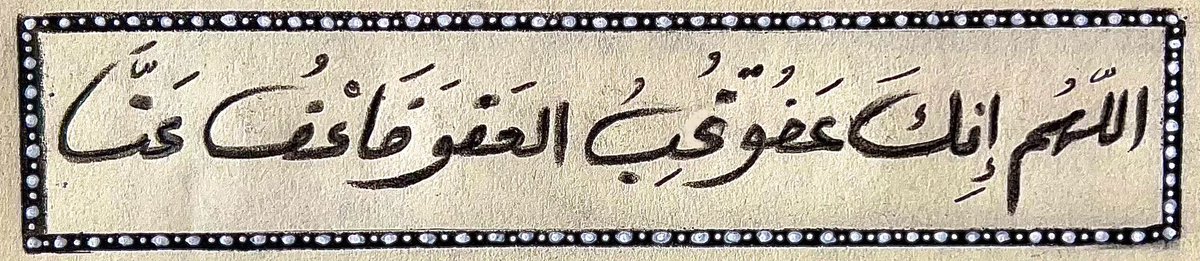 اللّهُم إِنكَ عَفُوّ تُحِبُ العَفْوَ فَاعْفُ عَنَّا